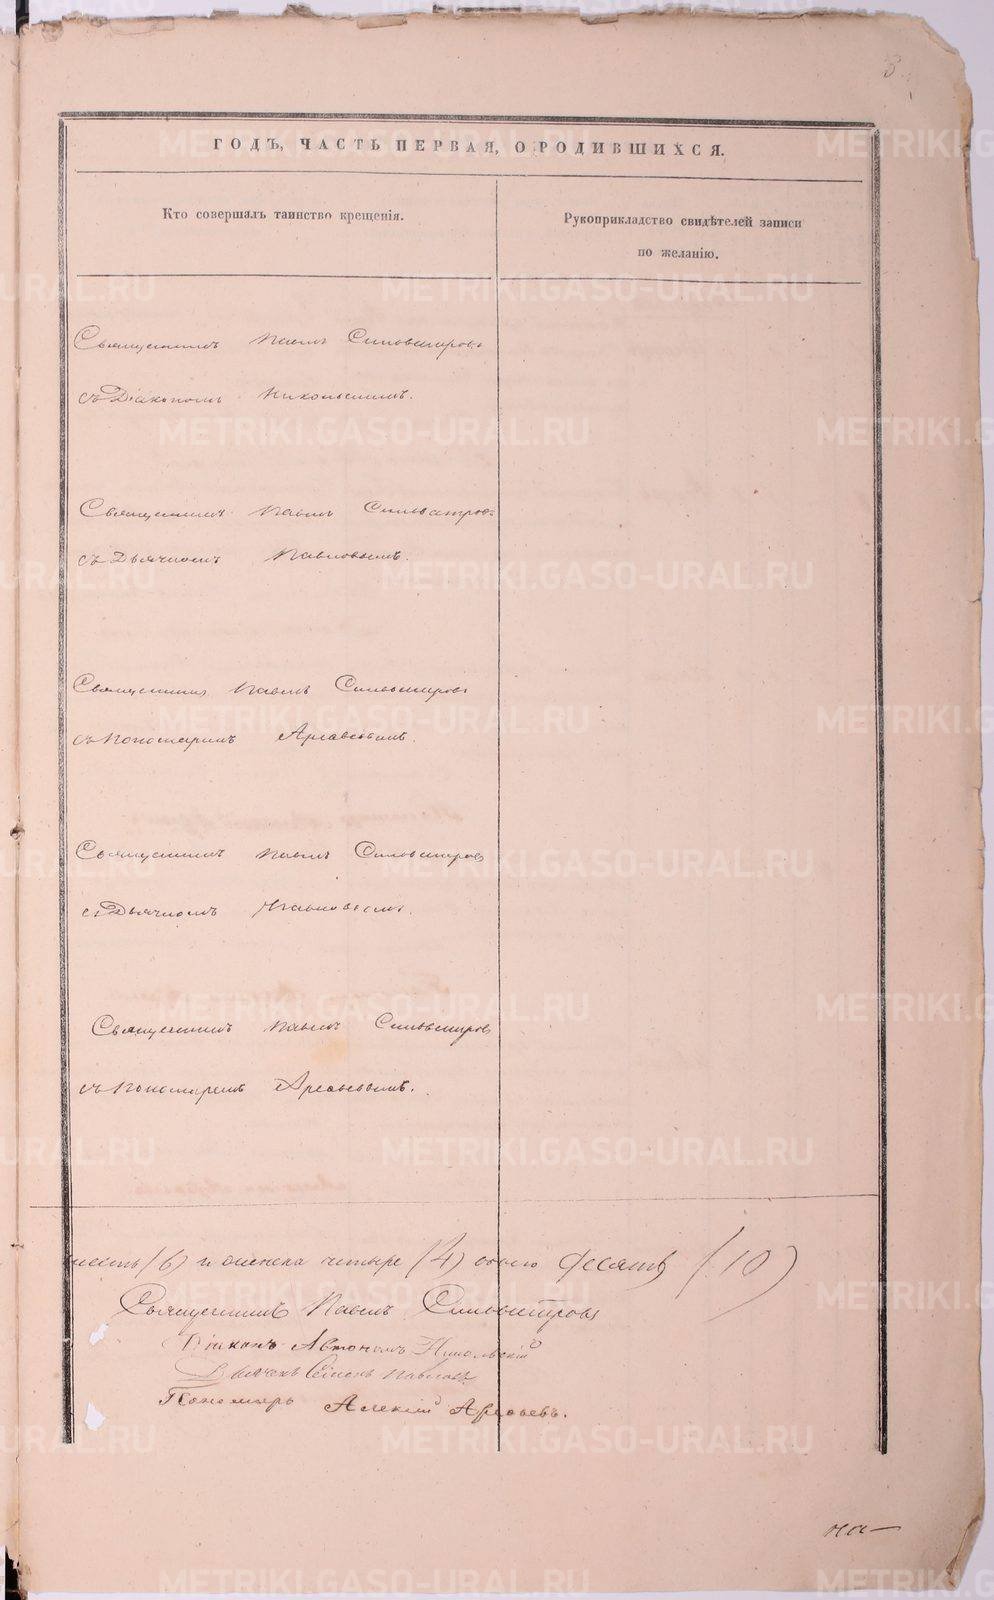 3.
ГОДЪ, ЧАСТЬ ПЕРВАЯ, О РОДИВШИХСЯ.
Кто совершалъ таинство крещенія.
Рукоприкладство свидѣтелей записи
по желанію.
Священникъ Павелъ Сильвестровъ
съ Діакономъ Никольскимъ.
Священникъ Павелъ Сильвестровъ
съ Дьячкомъ Павловымъ.
Священникъ Павелъ Сильвестровъ
съ Пономаремъ Арсеньевымъ.
Священникъ Павелъ Сильвестровъ
съ Дьячкомъ Павловымъ.
Священникъ Павелъ Сильвестровъ
съ Пономаремъ Арсеньевымъ.
шесть (6) и женска четыре (4) обоего десять (10)
Священникъ Павелъ Сильвестровъ
Діаконъ Автономъ Никольскій
Дьячекъ Павловъ
Пономарь Алексій Арсеньевъ.
METRIKI.GASO-URAL.RU